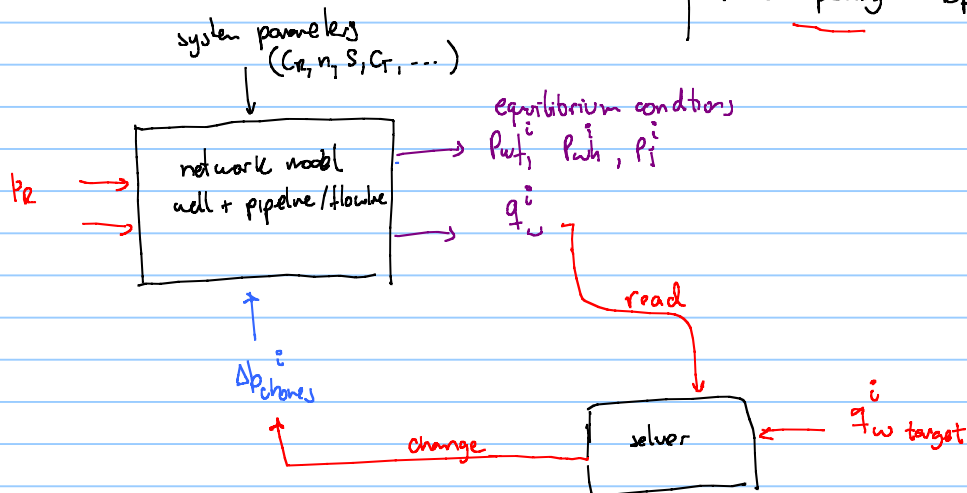 system parameters
(C_R, n, S, C_T, ...)
equilibrium conditions
p_wf^i, p_wh^i, p_j^i
network model
well + pipeline/flowline
p_R
q_w^i
read
Δp_chokes^i
change
solver
q_w target^i